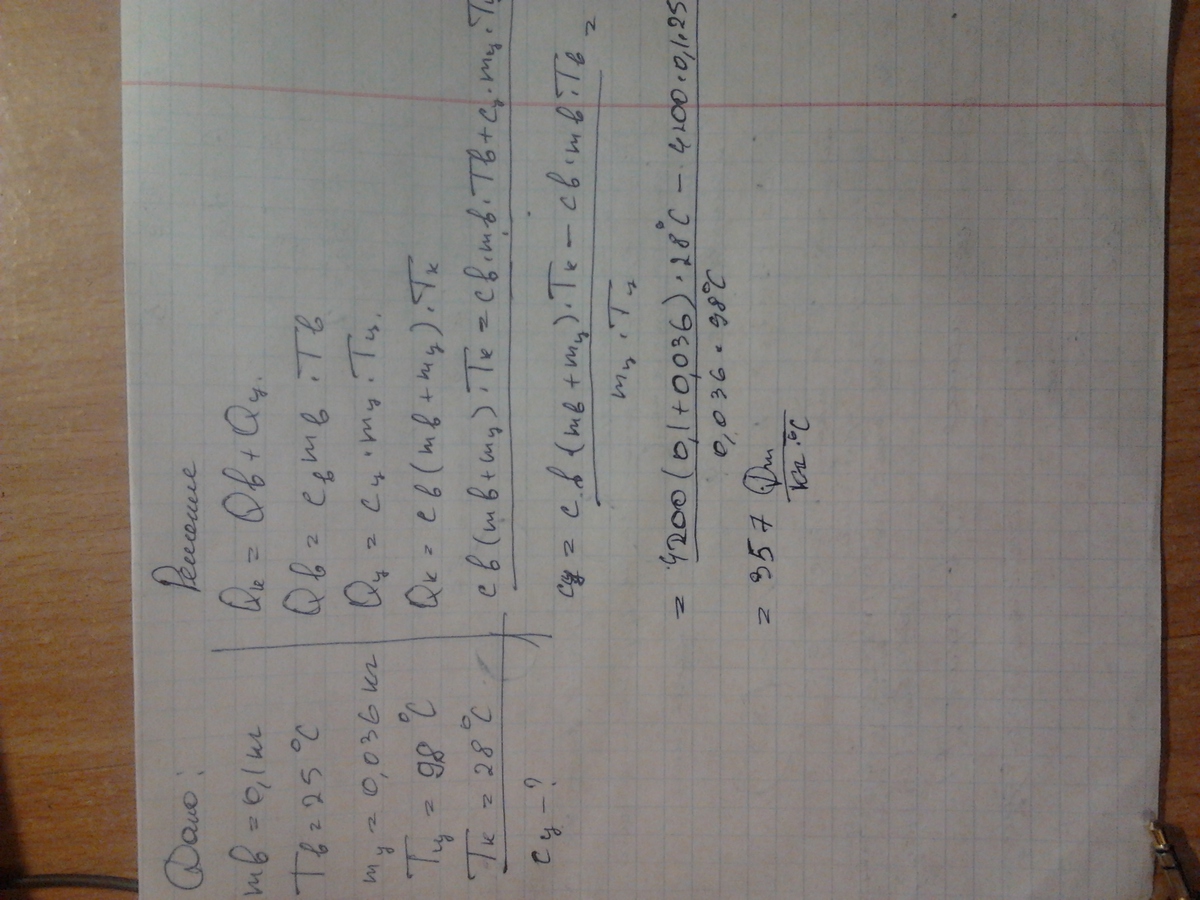 Дано:
mв = 0,1 кг
Tв = 25 °C
mц = 0,036 кг
Tц = 98 °C
Tк = 28 °C
cц - ?
Решение
Qк = Qв + Qц.
Qв = cв mв · Tв
Qц = cц · mц · Tц.
Qк = cв (mв + mц) · Tк
cв (mв + mц) · Tк = cв · mв · Tв + cц · mц · Tц
cц = cв (mв + mц) · Tк - cв · mв · Tв =
mц · Tц
= 4200 (0,1 + 0,036) · 28 °C - 4200 · 0,1 · 25
0,036 · 98 °C
= 357 Дж
кг · °C